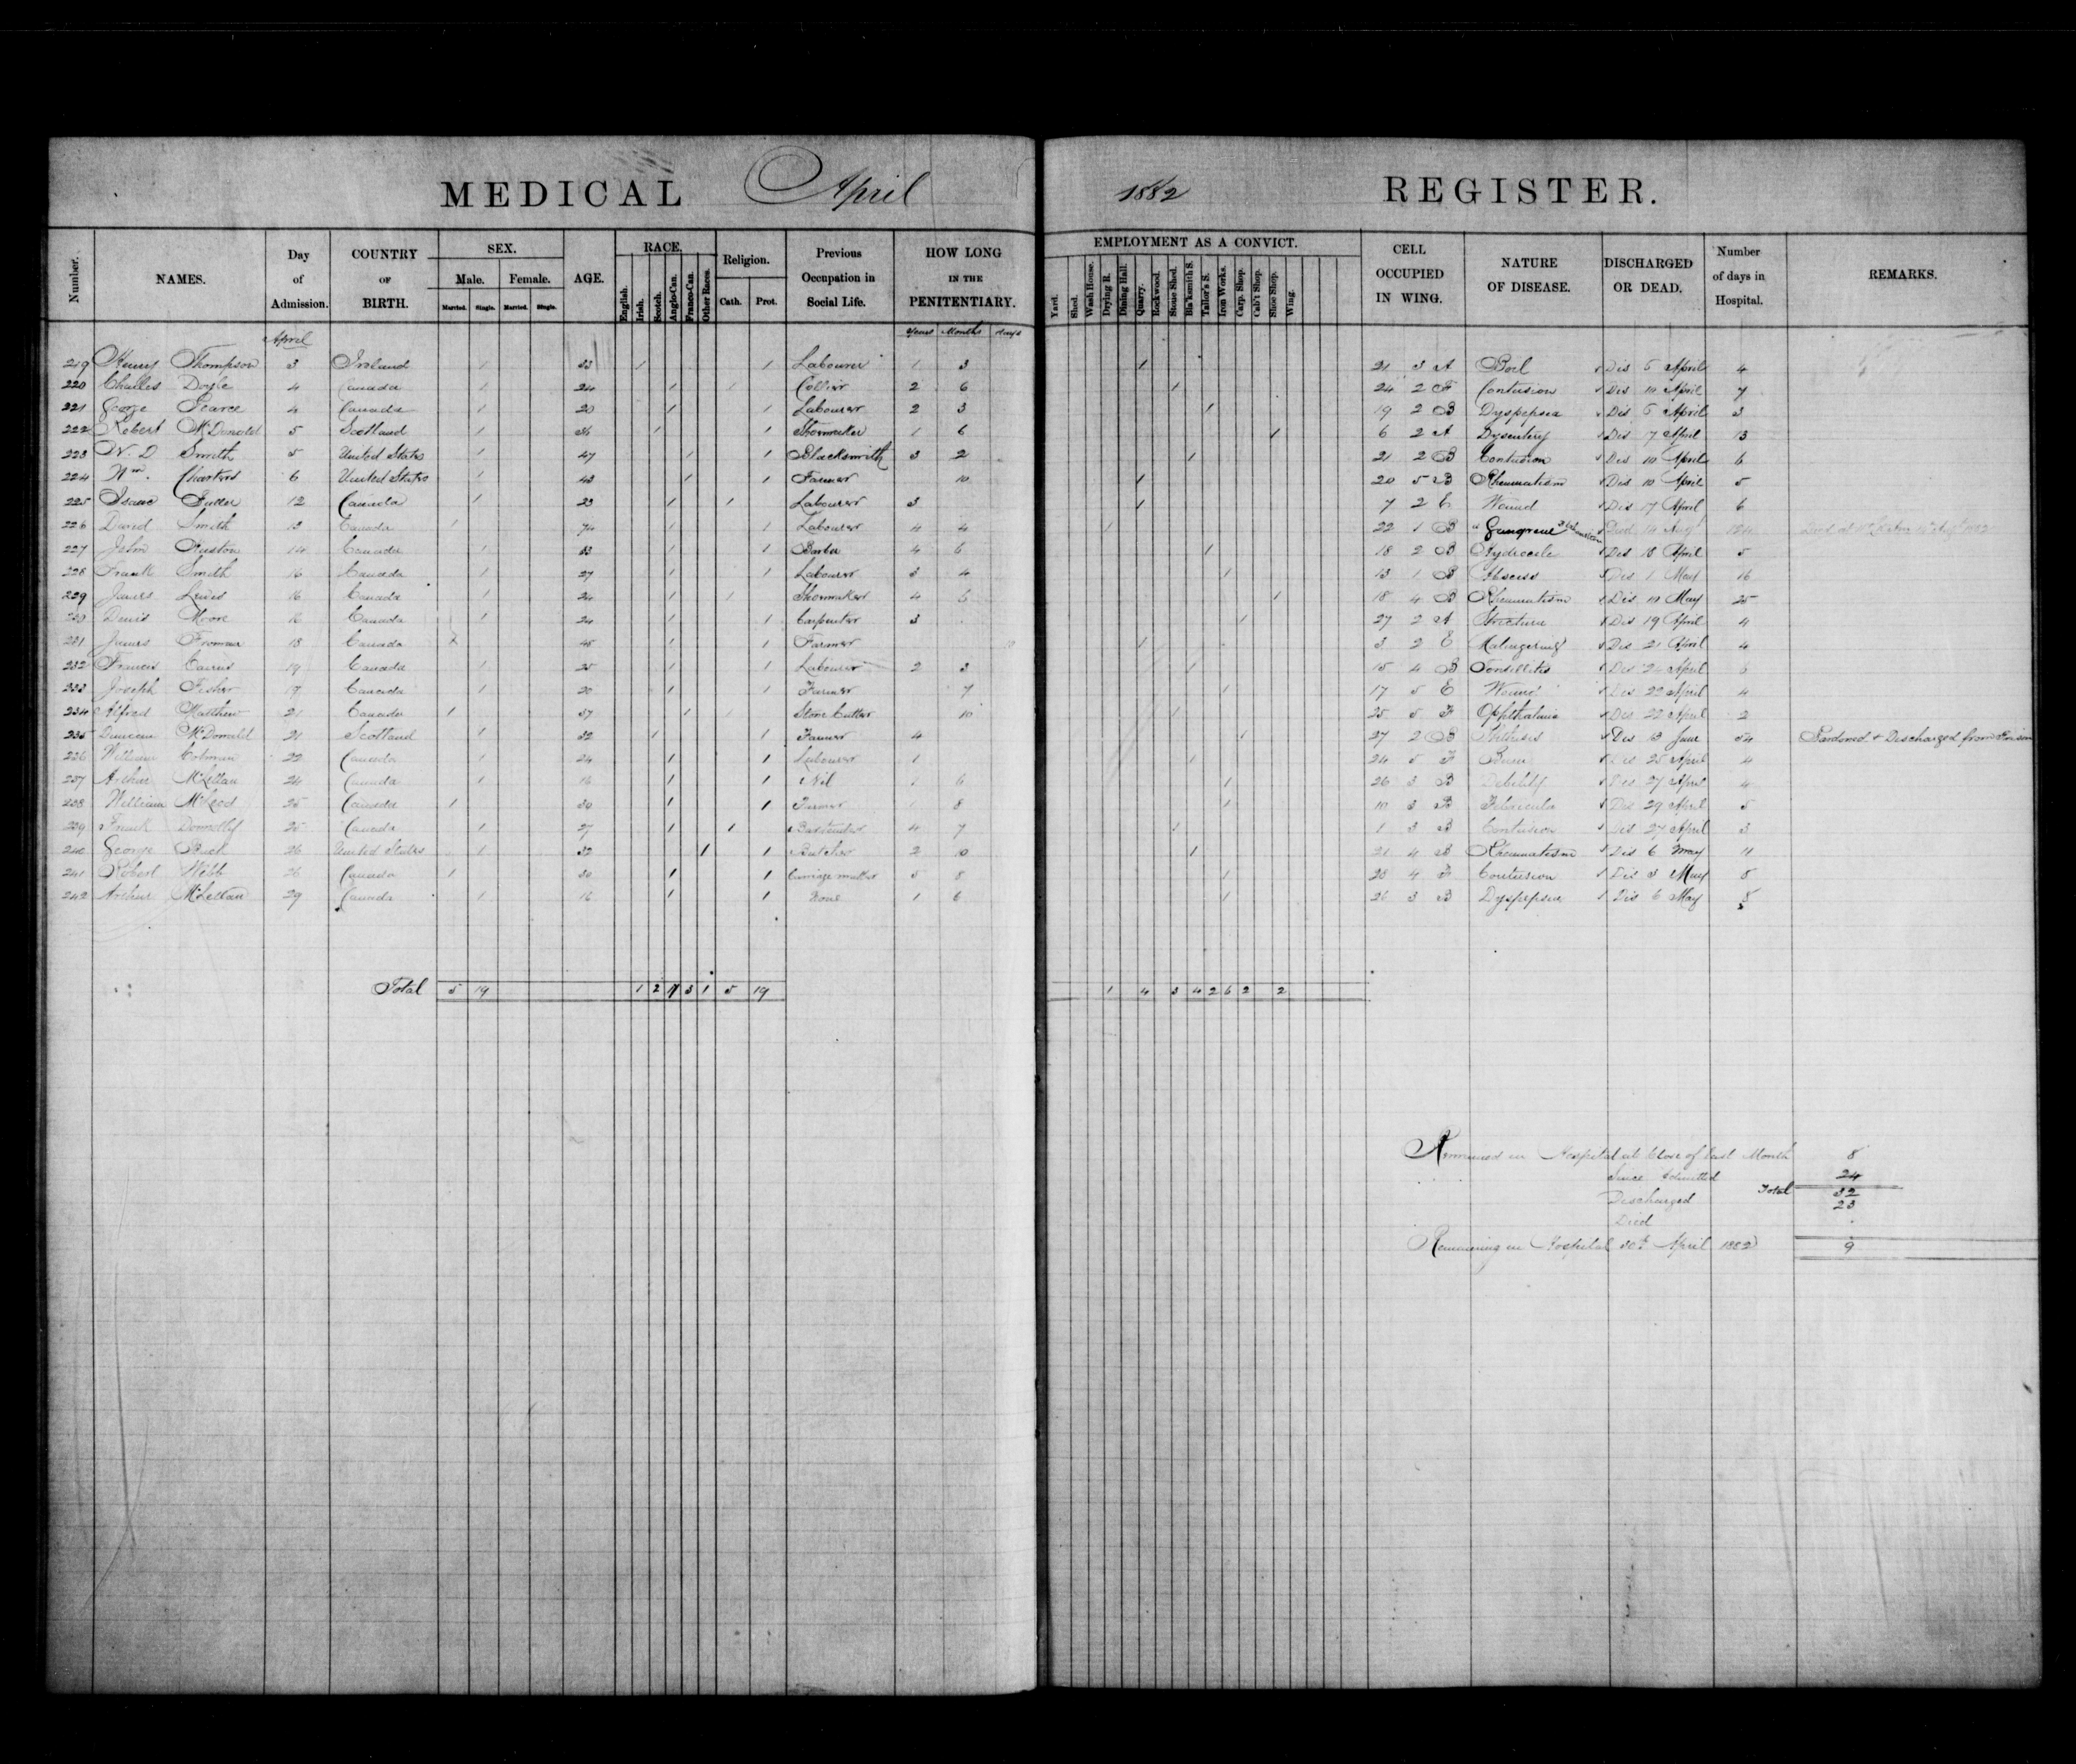 MEDICAL April 1882 REGISTER.
Number. NAMES. Day of Admission. COUNTRY OF BIRTH. SEX. Male. Female. Married. Single. Married. Single. AGE. RACE. English. Irish. Scotch. Anglo-Can. Franco-Can. Other Races. Religion. Cath. Prot. Previous Occupation in Social Life. HOW LONG IN THE PENITENTIARY. EMPLOYMENT AS A CONVICT. Yard. Shed. Wash House. Drying R. Dining Hall. Quarry. Rockwood. Stone Shed. Bla'ksmith S. Tailor's S. Iron Works. Carp. Shop. Cab't Shop. Shoe Shop. Wing. CELL OCCUPIED IN WING. NATURE OF DISEASE. DISCHARGED OR DEAD. Number of days in Hospital. REMARKS.
April Years Months days
219 Henry Thompson 3 Ireland 1 33 1 1 Labourer 1 3 1 21 3 A Boil Dis 5 April 4
220 Charles Doyle 4 Canada 1 24 1 1 Collier 2 6 1 24 2 F Contusion Dis 10 April 7
221 George Pearce 4 Canada 1 20 1 1 Labourer 2 3 1 19 2 B Dyspepsia Dis 5 April 3
222 Robert McDonald 5 Scotland 1 1 1 Shoemaker 1 6 1 6 2 A Dysentery Dis 7 April 13
223 W. D Smith 5 United States 1 47 1 1 Blacksmith 3 2 1 21 2 B Contusion Dis 10 April 6
224 Wm. Charters 6 United States 1 43 1 1 Farmer 10 1 20 5 B Rheumatism Dis 10 April 5
225 Isaac 12 Canada 1 23 1 1 Labourer 3 1 7 2 E Wound Dis 17 April 6
226 David Smith 13 Canada 1 74 1 1 Labourer 4 4 1 22 1 B Gangrene Died 14 Augt 124
227 John Ruston 14 Canada 1 33 1 1 Barber 4 6 1 18 2 B Hydrocele Dis 18 April 5
228 Frank Smith 16 Canada 1 27 1 1 Labourer 3 4 1 13 1 B Abscess Dis 1 May 16
229 James Lewis 16 Canada 1 24 1 1 Shoemaker 4 6 1 18 4 B Rheumatism Dis 10 May 25
230 Denis Moore 16 Canada 1 24 1 1 Carpenter 3 1 27 2 A Stricture Dis 19 April 4
231 James Froman 18 Canada 1 45 1 1 Farmer 1 3 2 E Malingering Dis 21 April 4
232 Francis Cairns 19 Canada 1 25 1 1 Labourer 2 3 1 15 4 B Tonsillitis Dis 24 April 6
233 Joseph Fisher 19 Canada 1 20 1 1 Farmer 7 1 17 5 E Wound Dis 22 April 4
234 Alfred Matthew 21 Canada 1 37 1 1 Stone Cutter 10 1 25 5 F Ophthalmia Dis 22 April 2
235 Duncan McDonald 21 Scotland 1 32 1 1 Farmer 4 1 27 2 B Phthisis Dis 13 June 54 Pardoned & Discharged from Prison
236 William Colman 22 Canada 1 24 1 1 Labourer 1 1 24 5 F Burn Dis 25 April 4
237 Arthur McLellan 24 Canada 1 16 1 1 Nil 1 6 1 26 3 B Debility Dis 27 April 4
238 William McLeod 25 Canada 1 30 1 1 Farmer 8 1 10 3 B Febricula Dis 29 April 5
239 Frank Donnelly 25 Canada 1 27 1 1 Bartender 4 7 1 1 3 B Contusion Dis 27 April 3
240 George Buck 26 United States 1 32 1 1 Butcher 2 10 1 21 4 B Rheumatism Dis 6 May 11
241 Robert Webb 26 Canada 1 30 1 1 Carriage maker 5 8 1 23 4 F Contusion Dis 3 May 8
242 Arthur McLellan 29 Canada 1 16 1 1 None 1 6 1 26 3 B Dyspepsia Dis 6 May 8
Total 5 19 1 2 17 3 1 5 19 1 4 3 4 2 6 2 2
Remained in Hospital at Close of last Month 8
Since Admitted 24
Total 32
Discharged 23
Died .
Remaining in Hospital 30th April 1882 9